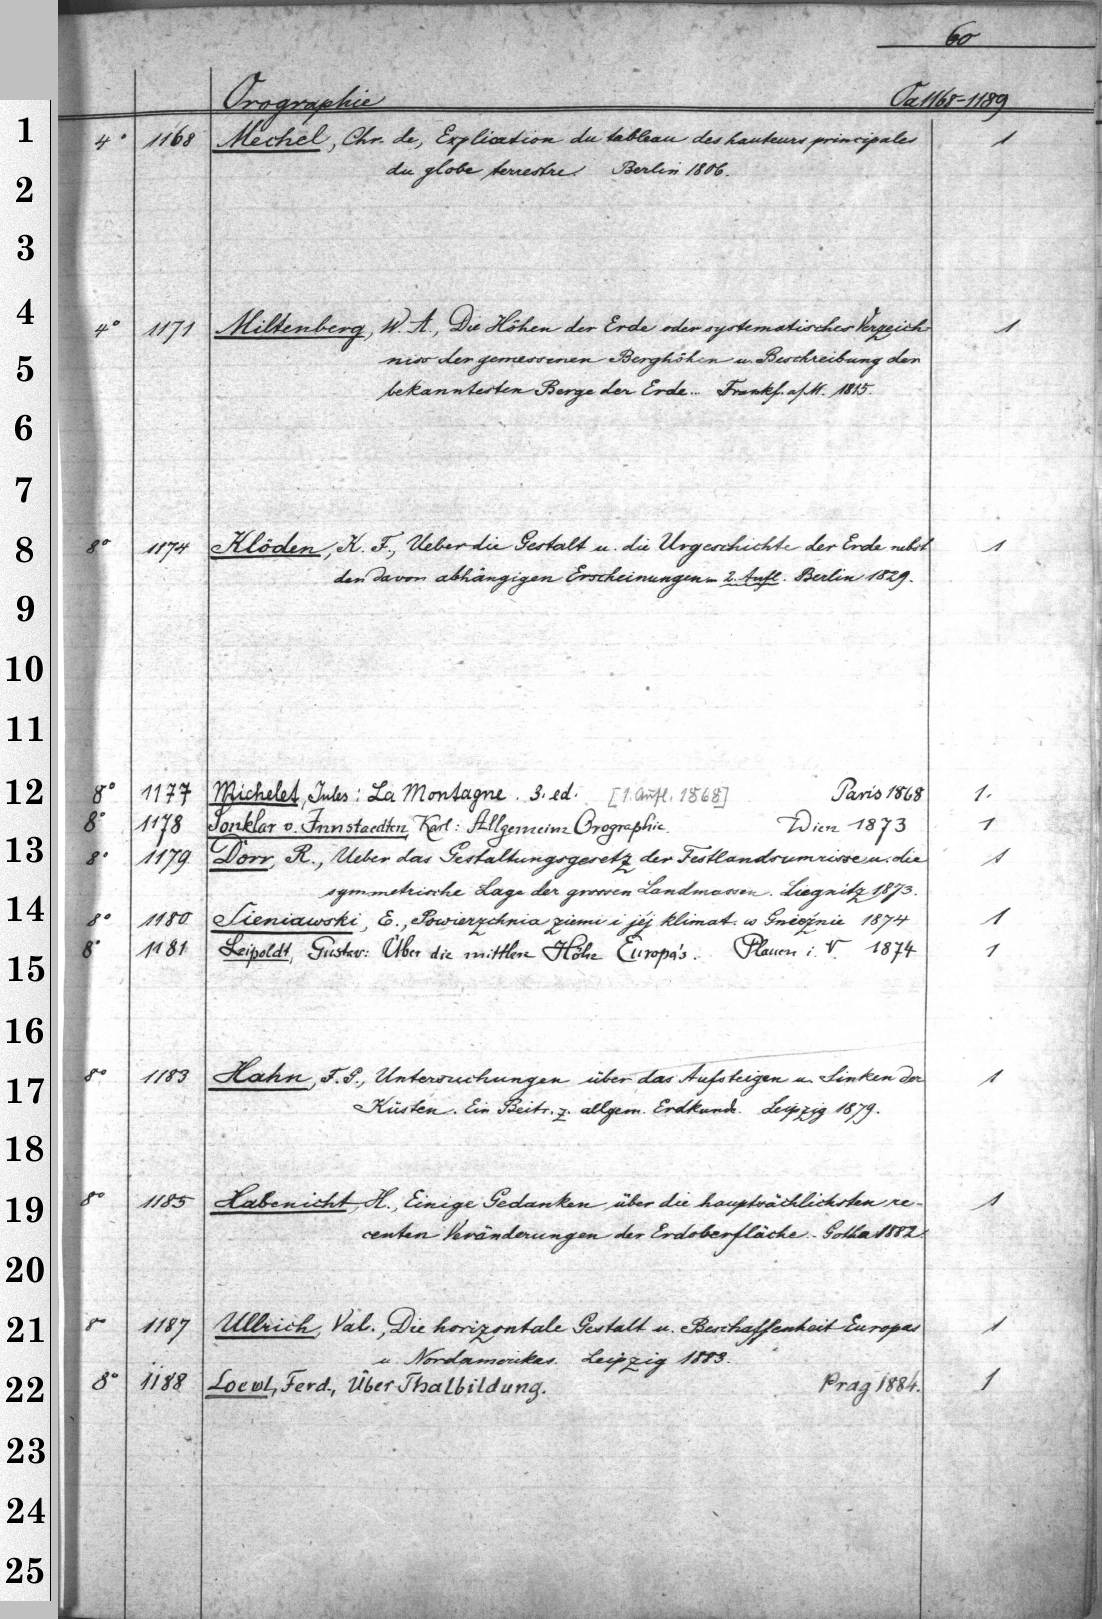 60
Orographie Oa 1168-1189
1
4° 1168 Mechel, Chr. de, Explication du tableau des hauteurs principales 1
2
du globe terrestre. Berlin 1806.
3
4
4° 1171 Miltenberg, W. A., Die Höhen der Erde oder systematisches Verzeich- 1
5
niss der gemessenen Berghöhen u. Beschreibung der
bekanntesten Berge der Erde... Frankf. a/M. 1815.
6
7
8
8° 1874 Klöden, K. F., Ueber die Gestalt u. die Urgeschichte der Erde nebst 1
den davon abhängigen Erscheinungen 2. Aufl. Berlin 1829.
9
10
11
12
8° 1177 Michelet, Jules: La Montagne. 3. ed. [1. Aufl. 1868] Paris 1868 1.
8° 1178 Sonklar v. Innstaedten, Karl: Allgemeine Orographie. Wien 1873 1
13
8° 1179 Dorr, R., Ueber das Gestaltungsgesetz der Festlandsumrisse u. die 1
symmetrische Lage der grossen Landmassen. Liegnitz 1873.
14
8° 1180 Sieniawski, E., Powierzchnia ziemi i jéj klimat. w Gnieźnie 1874 1
8° 1181 Leipoldt, Gustav: Über die mittlere Höhe Europa's. Plauen i. V. 1874 1
15
16
17
8° 1183 Hahn, F. G., Untersuchungen über das Aufsteigen u. Sinken der 1
Küsten. Ein Beitr. z. allgem. Erdkunde. Leipzig 1879.
18
19
8° 1185 Habenicht, H., Einige Gedanken über die hauptsächlichsten re- 1
centen Veränderungen der Erdoberfläche. Gotha 1882.
20
21
8° 1187 Ullrich, Val., Die horizontale Gestalt u. Beschaffenheit Europas 1
u. Nordamerikas. Leipzig 1883.
22
8° 1188 Loewl, Ferd., Über Thalbildung. Prag 1884. 1
23
24
25